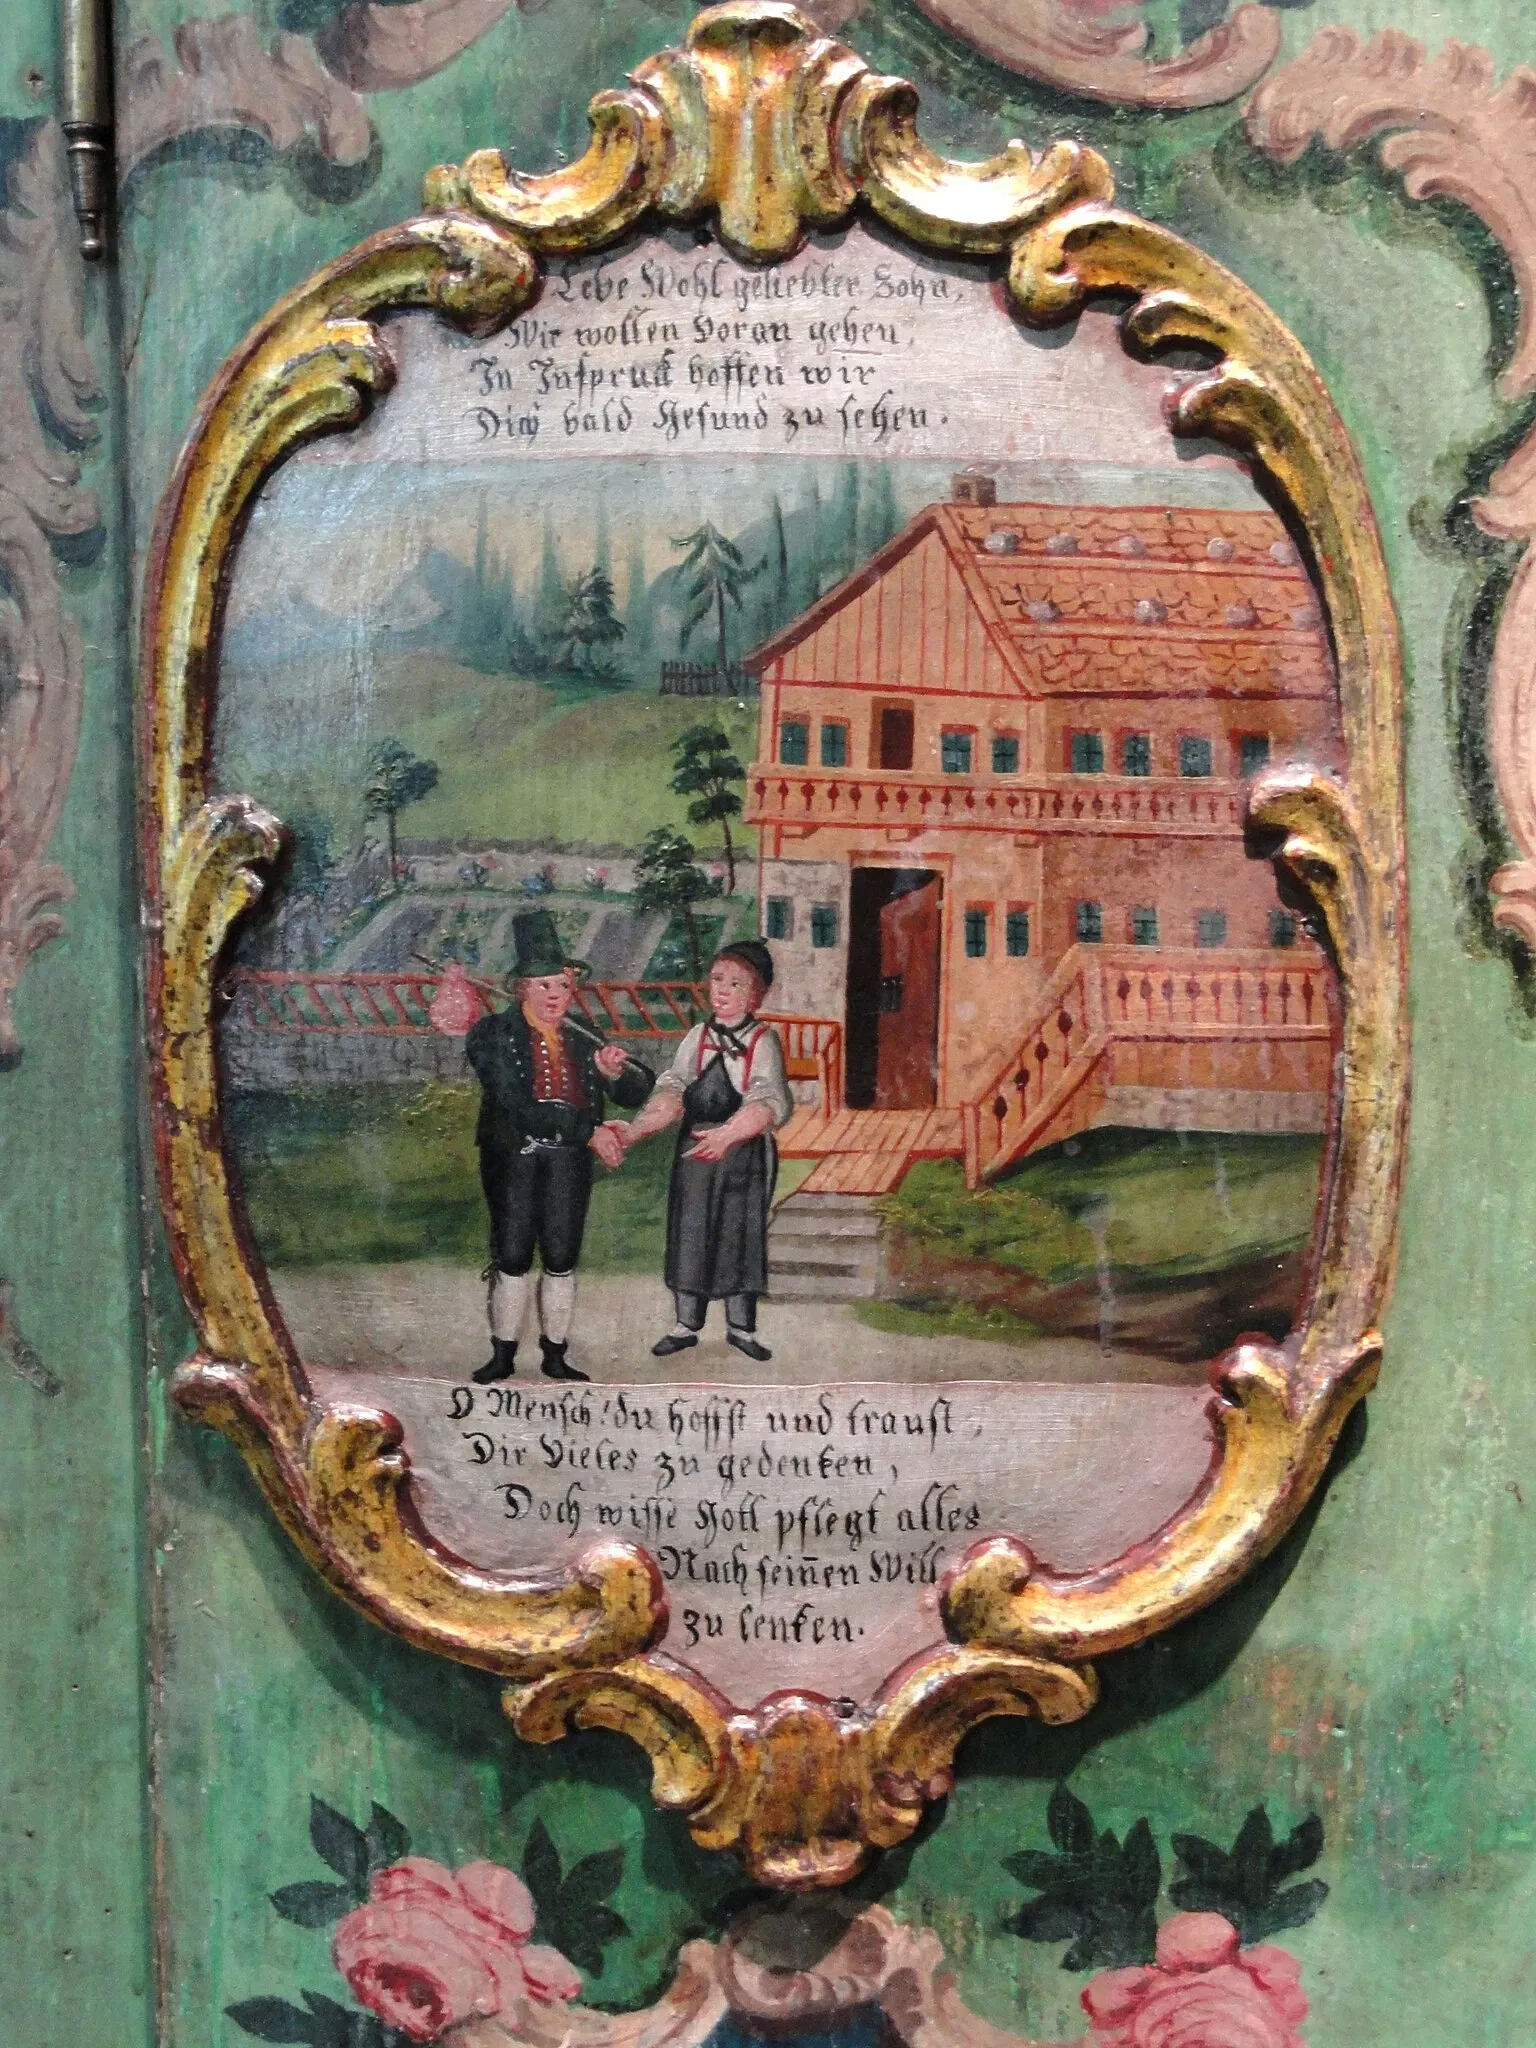 Lebe Wohl geliebter Sohn,
Wir wollen Voran gehen,
In Inspruck hoffen wir
Dich bald Gesund zu sehen.
O Mensch! du hoffst und traust,
Dir Vieles zu gedenken,
Doch wisse Gott pflegt alles
Nach sein̄en Will
zu lenken.